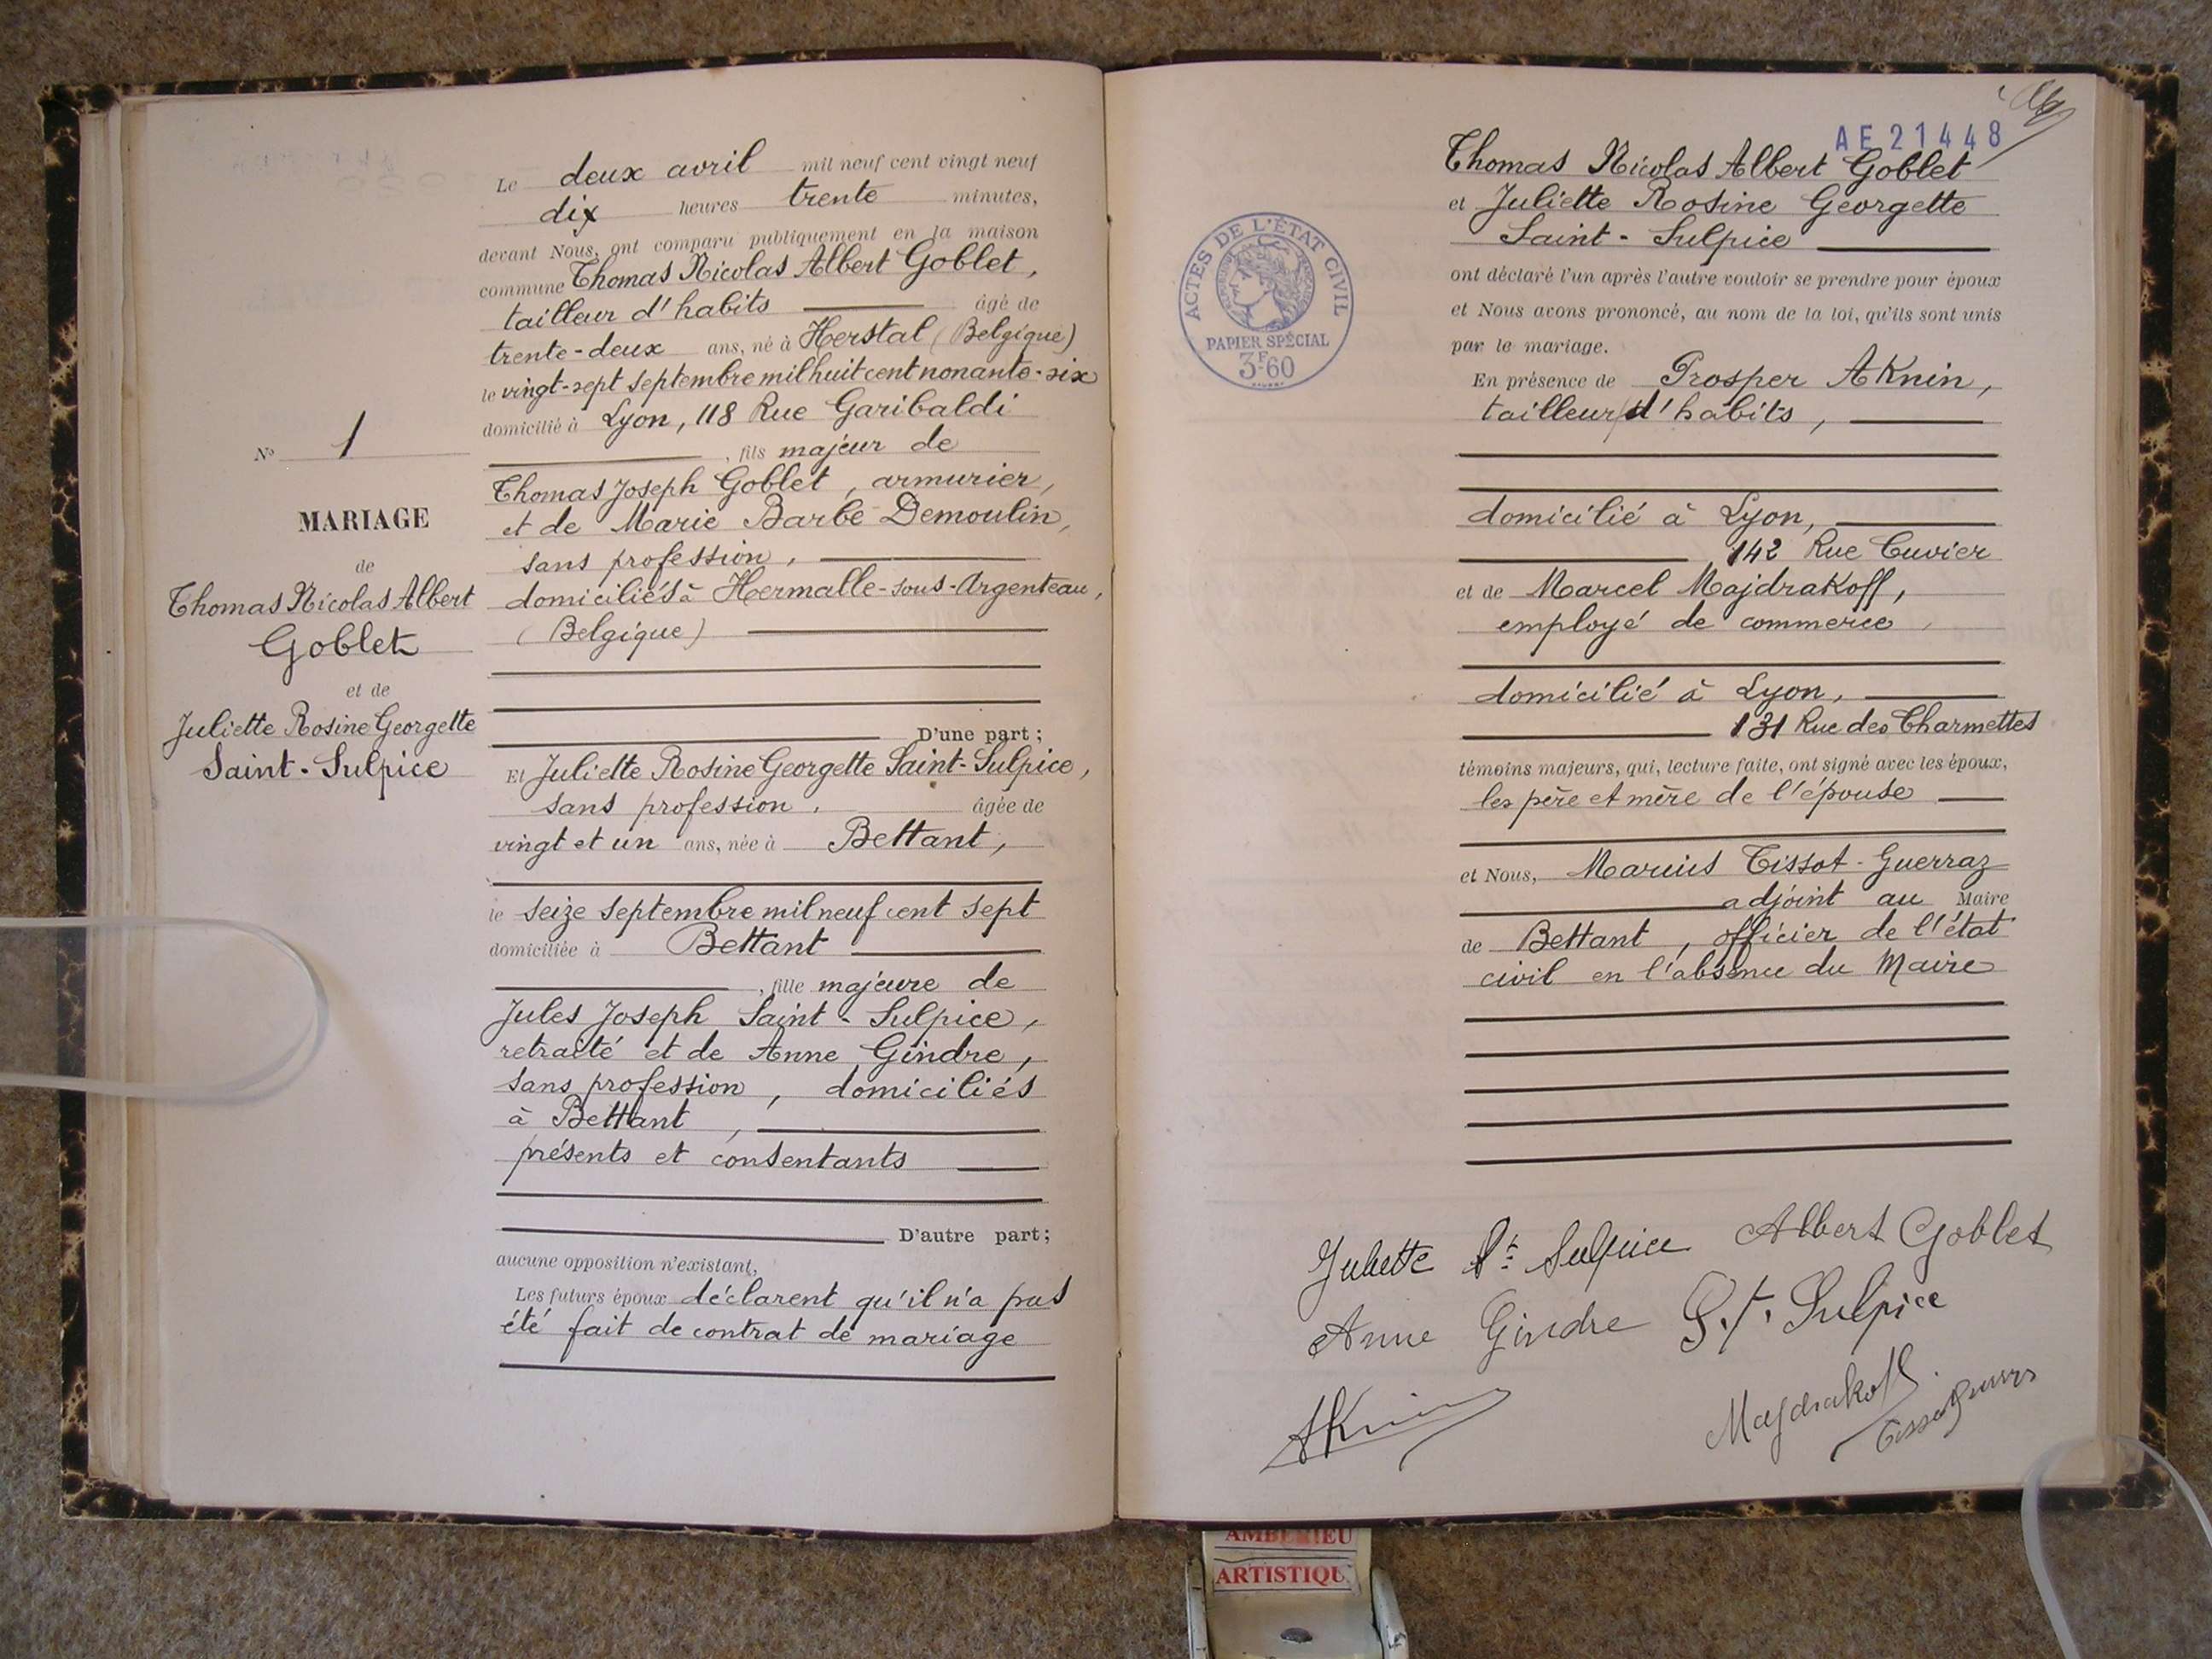 N° 1
MARIAGE
de
Thomas Nicolas Albert
Goblet
et de
Juliette Rosine Georgette
Saint-Sulpice
Le deux avril mil neuf cent vingt neuf
dix heures trente minutes,
devant Nous, ont comparu publiquement en la maison
commune Thomas Nicolas Albert Goblet,
tailleur d'habits âgé de
trente-deux ans, né à Herstal (Belgique)
le vingt-sept septembre mil huit cent nonante-six
domicilié à Lyon, 118 Rue Garibaldi
, fils majeur de
Thomas Joseph Goblet, armurier,
et de Marie Barbe Demoulin,
sans profession,
domiciliés à Hermalle-sous-Argenteau,
(Belgique)
D'une part ;
Et Juliette Rosine Georgette Saint-Sulpice,
sans profession, âgée de
vingt et un ans, née à Bettant,
le seize septembre mil neuf cent sept
domiciliée à Bettant
, fille majeure de
Jules Joseph Saint-Sulpice,
retraité et de Anne Gindre,
sans profession, domiciliés
à Bettant,
présents et consentants
D'autre part ;
aucune opposition n'existant,
Les futurs époux déclarent qu'il n'a pas
été fait de contrat de mariage
AE21448
ACTES DE L'ÉTAT CIVIL
PAPIER SPÉCIAL
3F60
Thomas Nicolas Albert Goblet
et Juliette Rosine Georgette
Saint-Sulpice
ont déclaré l'un après l'autre vouloir se prendre pour époux
et Nous avons prononcé, au nom de la loi, qu'ils sont unis
par le mariage.
En présence de Prosper AKnin,
tailleur d'habits,
domicilié à Lyon,
142 Rue Cuvier
et de Marcel MajdraKoff,
employé de commerce
domicilié à Lyon,
131 Rue des Charmettes
témoins majeurs, qui, lecture faite, ont signé avec les époux,
les père et mère de l'épouse
et Nous, Marius Tissot-Guerraz
adjoint au Maire
de Bettant, officier de l'état
civil en l'absence du Maire
Juliette St Sulpice Albert Goblet
Anne Gindre S.t. Sulpice
AKnin
Majdrakoff
AMBERIEU
ARTISTIQU